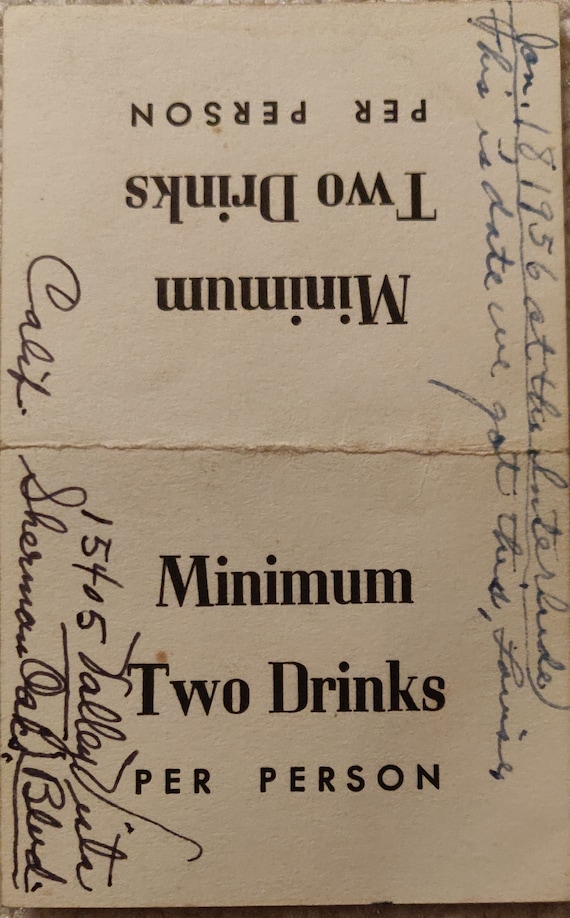 PER PERSON
Two Drinks
Minimum
Minimum
Two Drinks
PER PERSON
Jan. 18 1956 at the Interlude)
This is date we got this, Louise,
15405 Valley Vista
Sherman Oaks, Blvd.
Calif.